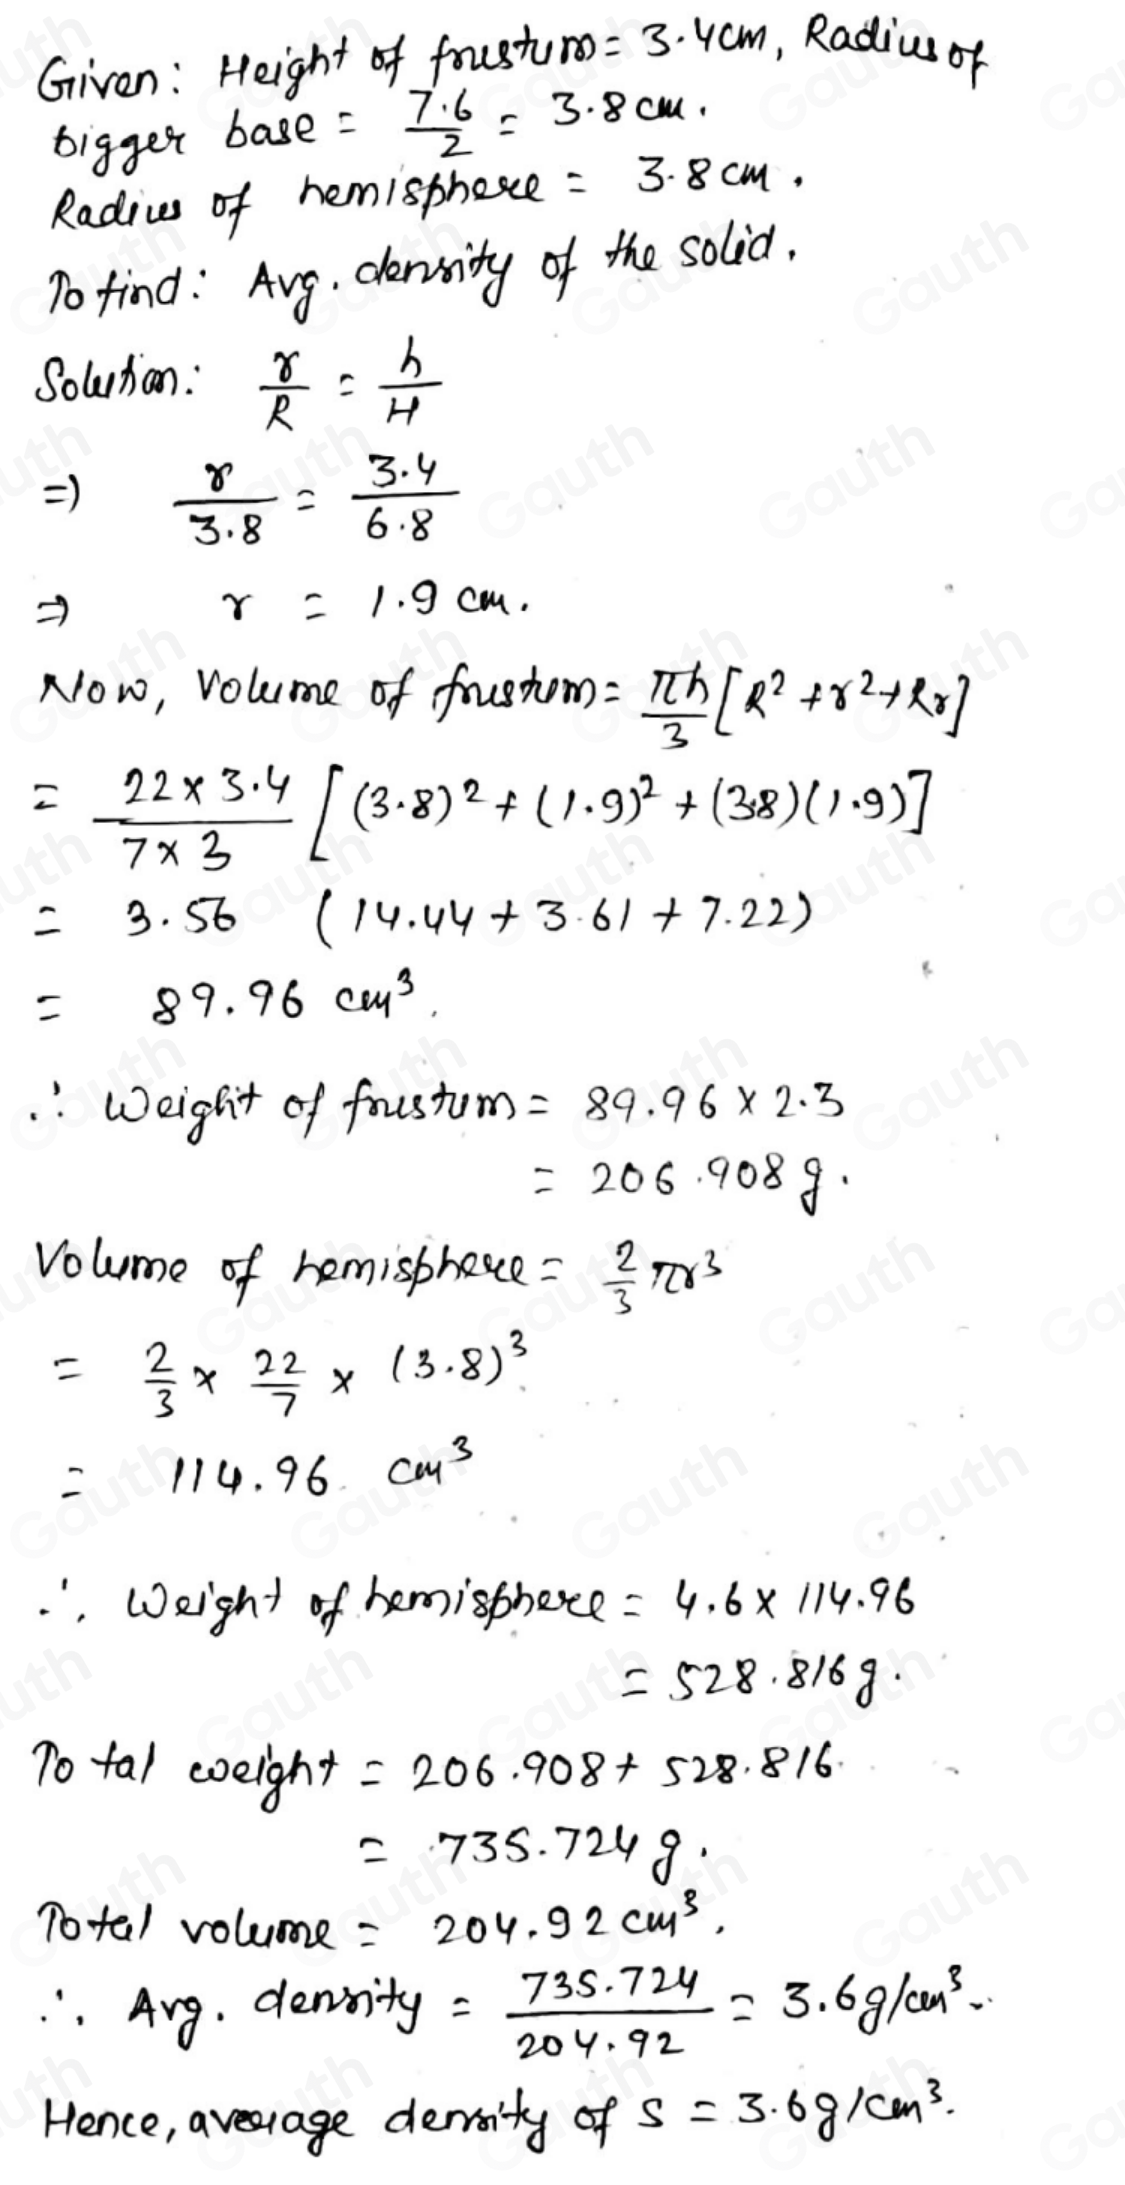 Given: Height of frustum = 3.4cm, Radius of
bigger base = 7.6/2 = 3.8 cm.
Radius of hemisphere = 3.8 cm.
To find: Avg. density of the solid.
Solution: r/R = h/H
=) r/3.8 = 3.4/6.8
⇒ r = 1.9 cm.
Now, Volume of frustum = πh/3 [R² + r² + Rr]
= 22 × 3.4/7 × 3 [(3.8)² + (1.9)² + (3.8)(1.9)]
= 3.56 (14.44 + 3.61 + 7.22)
= 89.96 cm³.
∴ Weight of frustum = 89.96 × 2.3
= 206.908 g.
Volume of hemisphere = 2/3 πr³
= 2/3 × 22/7 × (3.8)³
= 114.96 cm³
∴ Weight of hemisphere = 4.6 × 114.96
= 528.816 g.
Total weight = 206.908 + 528.816
= 735.724 g.
Total volume = 204.92 cm³.
∴ Avg. density = 735.724/204.92 = 3.6 g/cm³.
Hence, average density of S = 3.6 g/cm³.
Gauth